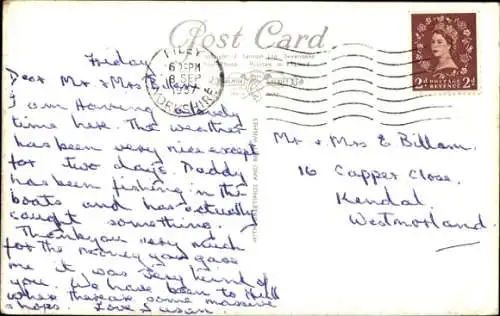 Post Card
Friday
Dear Mr + Mrs Billam
I am Having a lovely
time here. The weather
has been very nice except
for two days. Daddy
has been fishing in the
boats and has actually
caught something.
Thankyou very much
for the money you gave
me it was very kind of
you. We have been to Hull
where there are some massive
shops. Love Susan.
FILEY
6 PM
8 SEP
YORKSHIRE
2d POSTAGE 2d
REVENUE
Mr + Mrs E Billam.
16 Capper Close.
Kendal.
Westmorland.